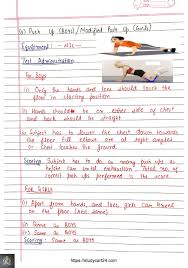 (v) Push Up (Boys) / Modified Push Up (Girls)
Equipment - NIL -
Test Administration
For Boys
(i) Only the hands and toes should touch the
floor in starting position
(ii) Hands should be on either side of chest
and back should be straight
(iii) Subject has to lower the chest down towards
the floor till elbows are at right angles
or chest touches the ground.
Scoring: Subject has to do as many push ups as
before can be until exhaustion. Total no. of
correct push ups performed is the score.
For Girls
(i) Apart from hands and toes, girls can bend
on the floor
(ii) Same as BOYS
(iii) Same as BOYS
Scoring - Same as BOYS
https://studycart24.com